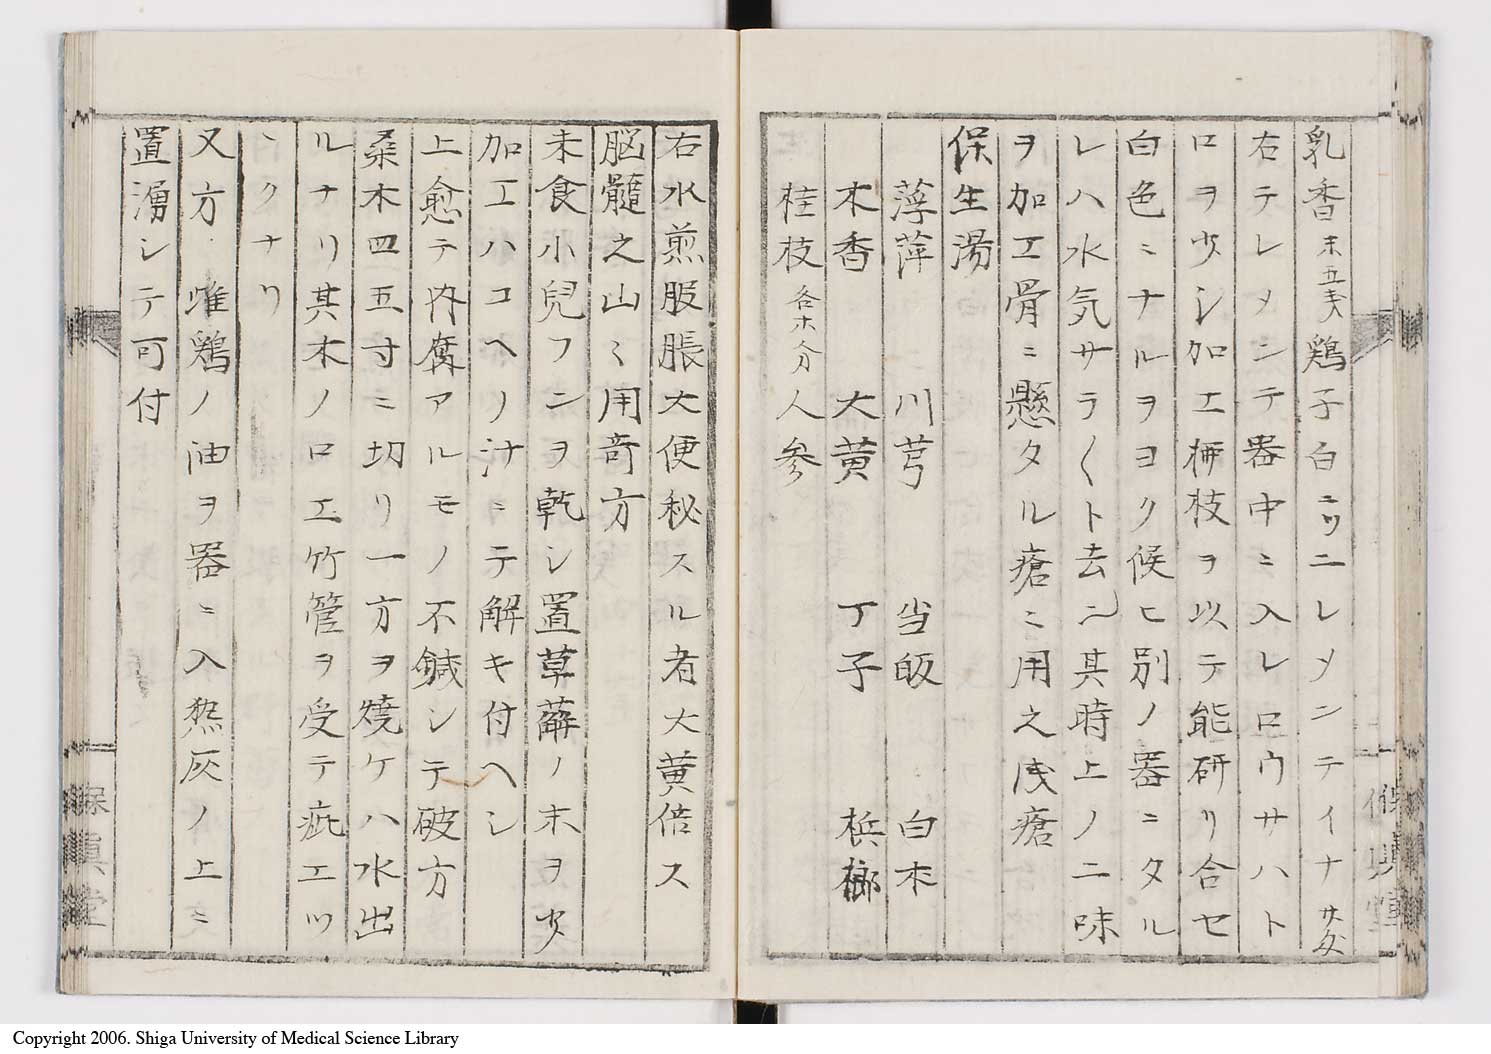 乳香末五匁鶏子白ニツニレメンテイナサ
右テレメンテ器中ニ入レロウサハト
ロヲ少シ加エ栁枝ヲ以テ能研リ合セ
白色ニナルヲヨク候ヒ別ノ器ニタル
レハ水気サラ〱ト去ン其時上ノ二味
ヲ加エ骨ニ懸タル瘡ニ用之浅瘡
保生湯
萍 川芎 当皈 白朮
木香 大黄 丁子 梹榔
桂枝各ホ分人参
右水煎服脹大便秘スル者大黄倍ス
脳髄之山〻用竒方
未食小兒フンヲ乾シ置草薢ノ末ヲ少
加エハコヘリ汁ニテ解キ付ヘシ
上愈テ内腐アルモノ不鍼シテ破方
桑木四五寸ニ切リ一方ヲ燒ケハ水出
ルナリ其木ノロエ竹管ヲ受テ疵エツ
ヽクナリ
又方 雌鶏ノ油ヲ器ニ入熬灰ノ上ニ
置湧シテ可付
保眞堂
Copyright 2006. Shiga University of Medical Science Library